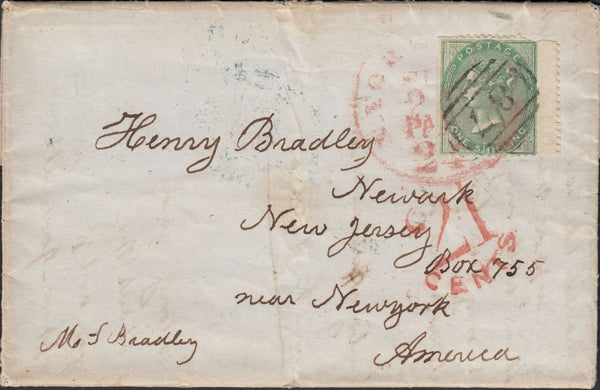 POSTAGE
ONE SHILLING
PA
24
Henry Bradley
Newark
New Jersey
Box 755
CENTS
near Newyork
Mrs Bradley
America